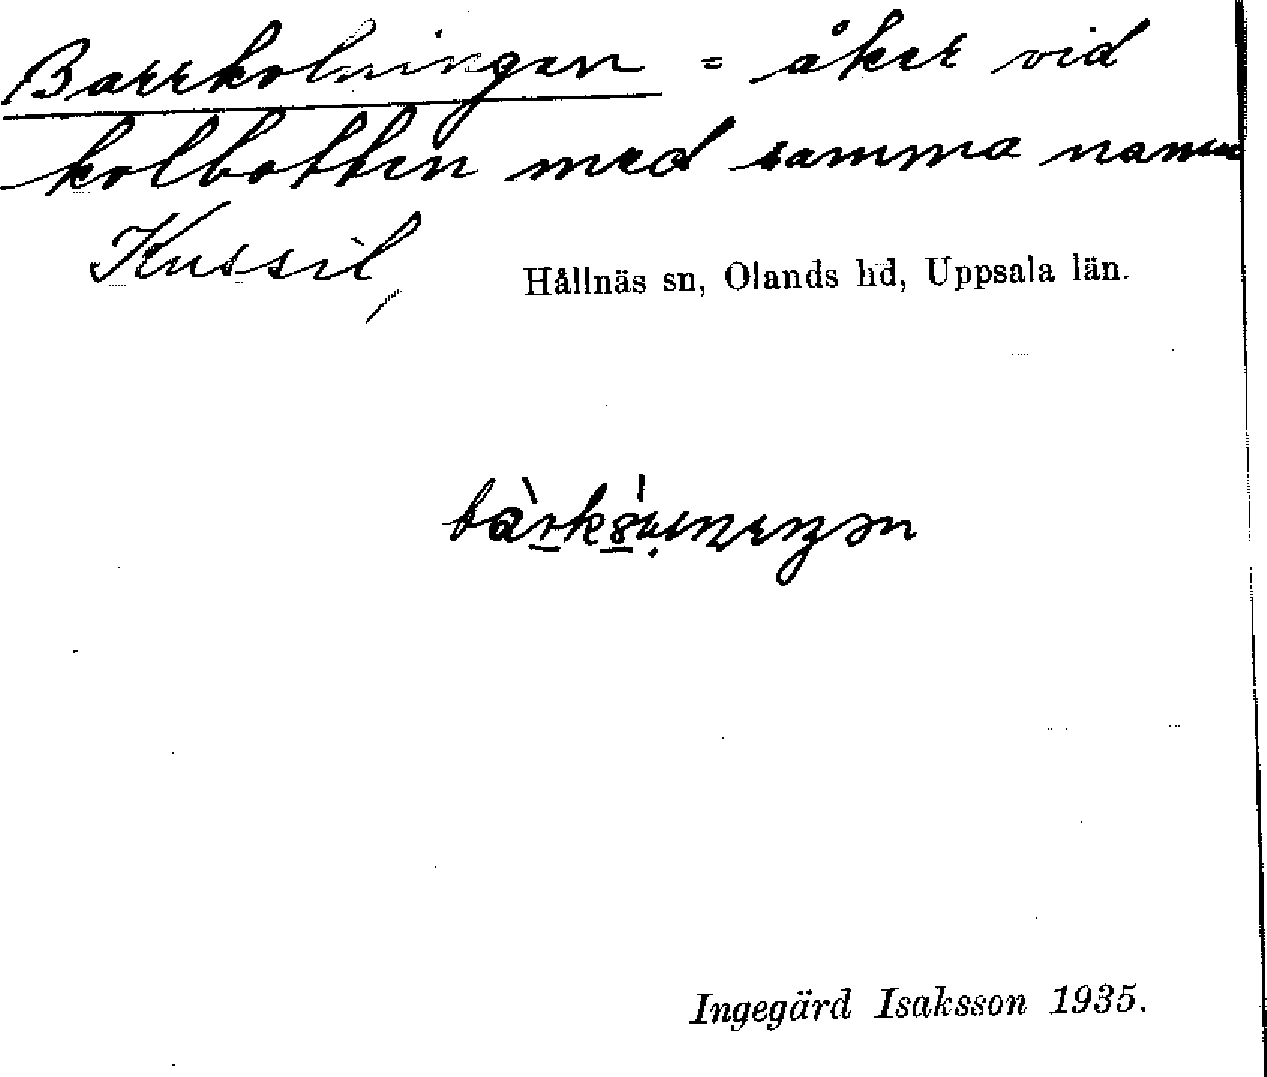 Barrkolningen = åker vid
kolbotten med samma namn
Kussil,
Hållnäs sn, Olands hd, Uppsala län.
Ingegärd Isaksson 1935.